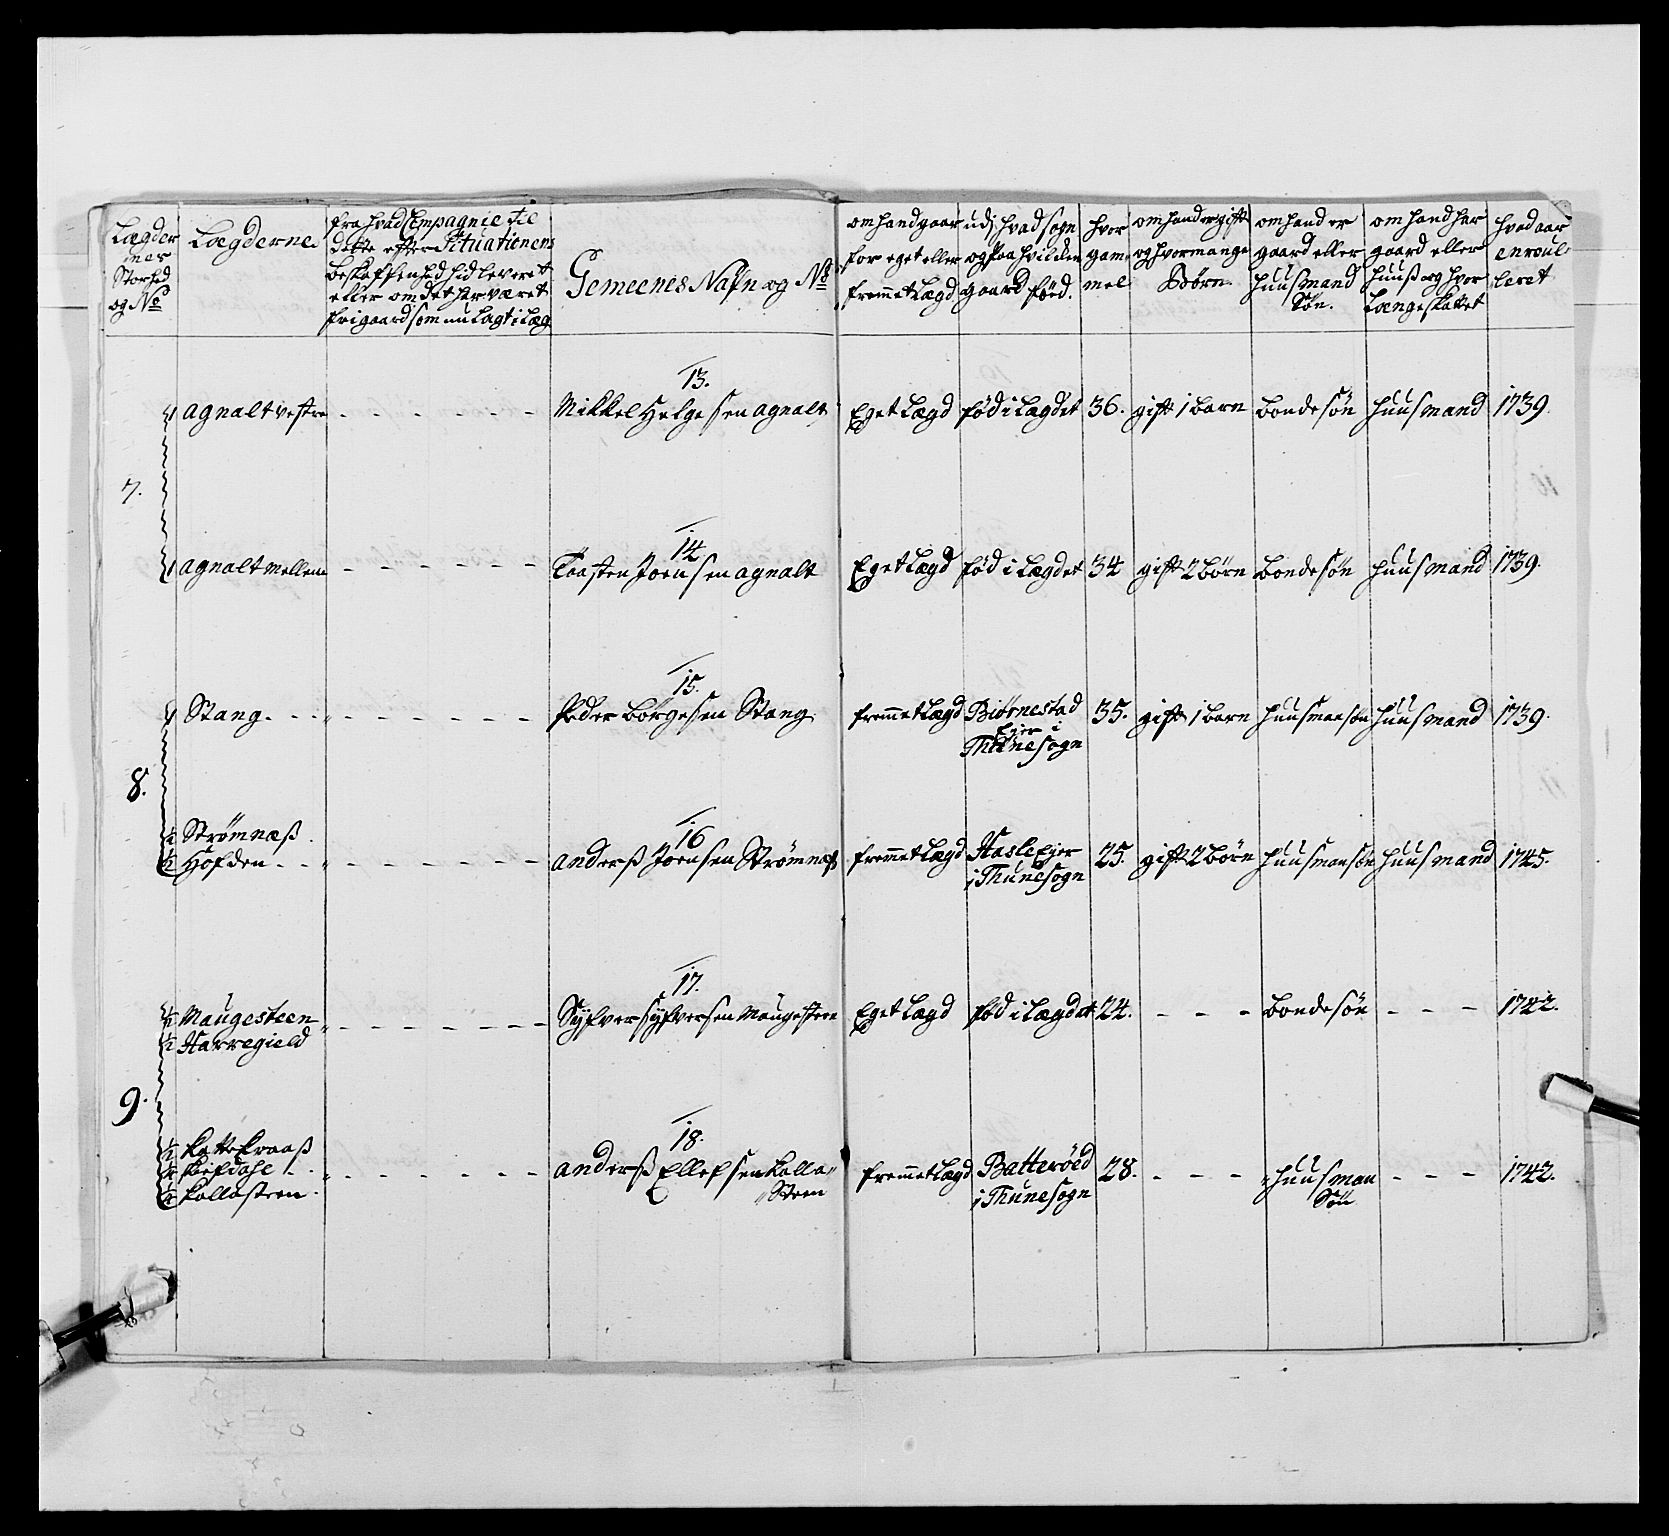 Lægder
nes
Storhed
og No
Lægderne
fra hvad Compagnie til
dette efter Situationens
beskaffenhed hid leveret
eller om det har været
frigaard som nu Lagt i Læg
Gemeenes Nafn og No
om hand gaar
for eget eller
fremmet Lægd
udj hvad sogn
og paa hvilken
gaard fød.
hvor
gam
mel
om hand er gift
og hvor mange
Børn.
om hand er
gaard eller
huusmand
Søn.
om hand har
gaard eller
huuß og hvor
Længe skattet
hvad aar
enroul
leret
7.
agnalt vestre
13.
Mikkel Helgessen agnalt
Eget Lægd
fød i Lægdet
36.
gift 1 barn
bondesøn
huusmand
1739.
agnalt mellem
14.
Taasten Joensen agnalt
Eget Lægd
fød i Lægdet
34
gift 2 børn
bondesøn
huusmand
1739.
8.
Stang
15.
Peder børgesen Stang
fremmet Lægd
Biørnestad
Ejer i
Thunesogn
35.
gift 1 barn
huusmansøn
huusmand
1739.
1/2 Strømnæß
1/2 Hofden
16
anderß Joensen Strømnæß
fremmet Lægd
Hasle Ejer
i Thunesogn
25.
gift 2 børn
huusmansøn
huusmand
1745.
9.
1/2 Maugesteen
1/2 Harregield
17.
Sÿfver sÿfversen Maugesteen
Eget Lægd
fød i Lægdet
24.
bondesøn
1742.
Kattekraaß
Kollasteen
18.
anderß Ellefsen Kolla
Steen
fremmet Lægd
Batterød
i Thunesogn
28.
huusman
Søn
1742.